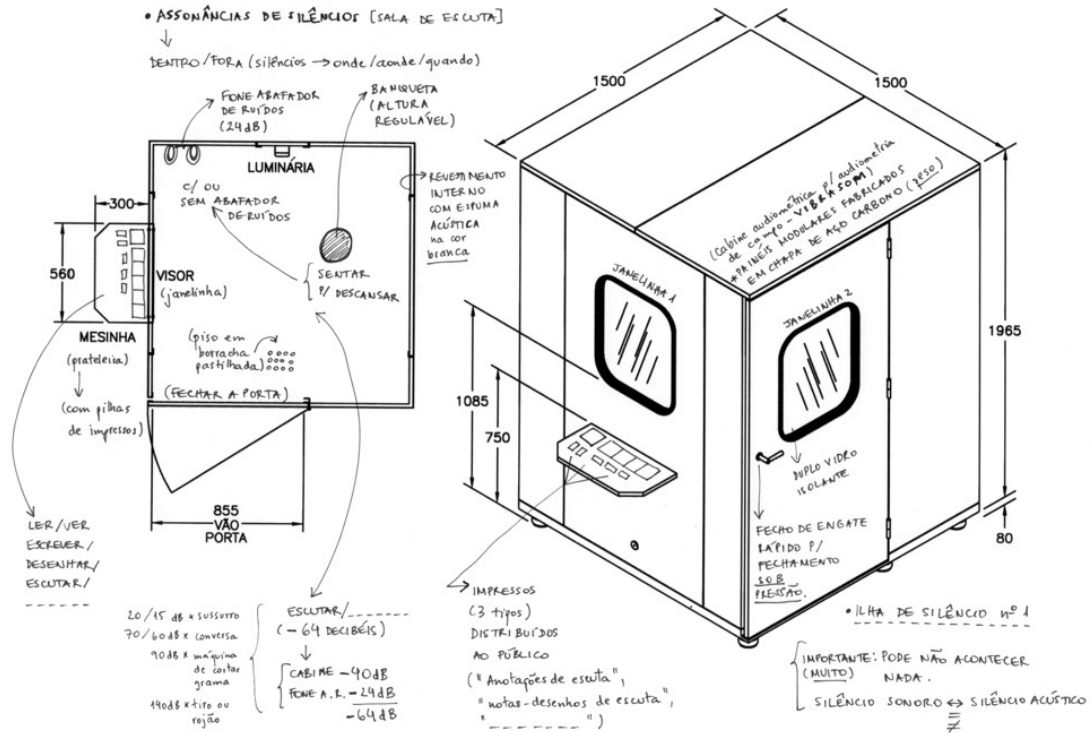 • ASSONÂNCIAS DE SILÊNCIOS [SALA DE ESCUTA]
DENTRO/FORA (silêncios → onde/aonde/quando)
FONE ABAFADOR
DE RUÍDOS
(24dB)
BANQUETA
(ALTURA
REGULÁVEL)
LUMINÁRIA
C/ OU
SEM ABAFADOR
DE RUÍDOS
REVESTIMENTO
INTERNO
COM ESPUMA
ACÚSTICA
na cor
branca
300
560
VISOR
(janelinha)
SENTAR
P/ DESCANSAR
MESINHA
(prateleira)
(com pilhas
de impressos)
(piso em
borracha
pastilhada)
(FECHAR A PORTA)
855
VÃO
PORTA
LER/VER
ESCREVER/
DESENHAR/
ESCUTAR/
_ _ _ _ _ _
20/15 dB * sussurro
70/60dB * conversa
90dB * máquina
de cortar
grama
140dB * tiro ou
rojão
ESCUTAR/_ _ _ _ _ _
(-64 DECIBÉIS)
CABINE -40dB
FONE A.R. -24dB
-64dB
1500
1500
(Cabine audiométrica p/ audiometria
de campo - VIBRASOM)
* PAINÉIS MODULARES FABRICADOS
EM CHAPA DE AÇO CARBONO (peso)
JANELINHA 1
JANELINHA 2
1965
1085
750
80
DUPLO VIDRO
ISOLANTE
FECHO DE ENGATE
RÁPIDO P/
FECHAMENTO
SOB
PRESSÃO.
IMPRESSOS
(3 tipos)
DISTRIBUÍDOS
AO PÚBLICO
("Anotações de escuta",
"notas-desenhos de escuta",
"_ _ _ _ _ _ _")
• ILHA DE SILÊNCIO nº 1
IMPORTANTE: PODE NÃO ACONTECER
(MUITO) NADA.
SILÊNCIO SONORO ⇔ SILÊNCIO ACÚSTICO
≡
≠